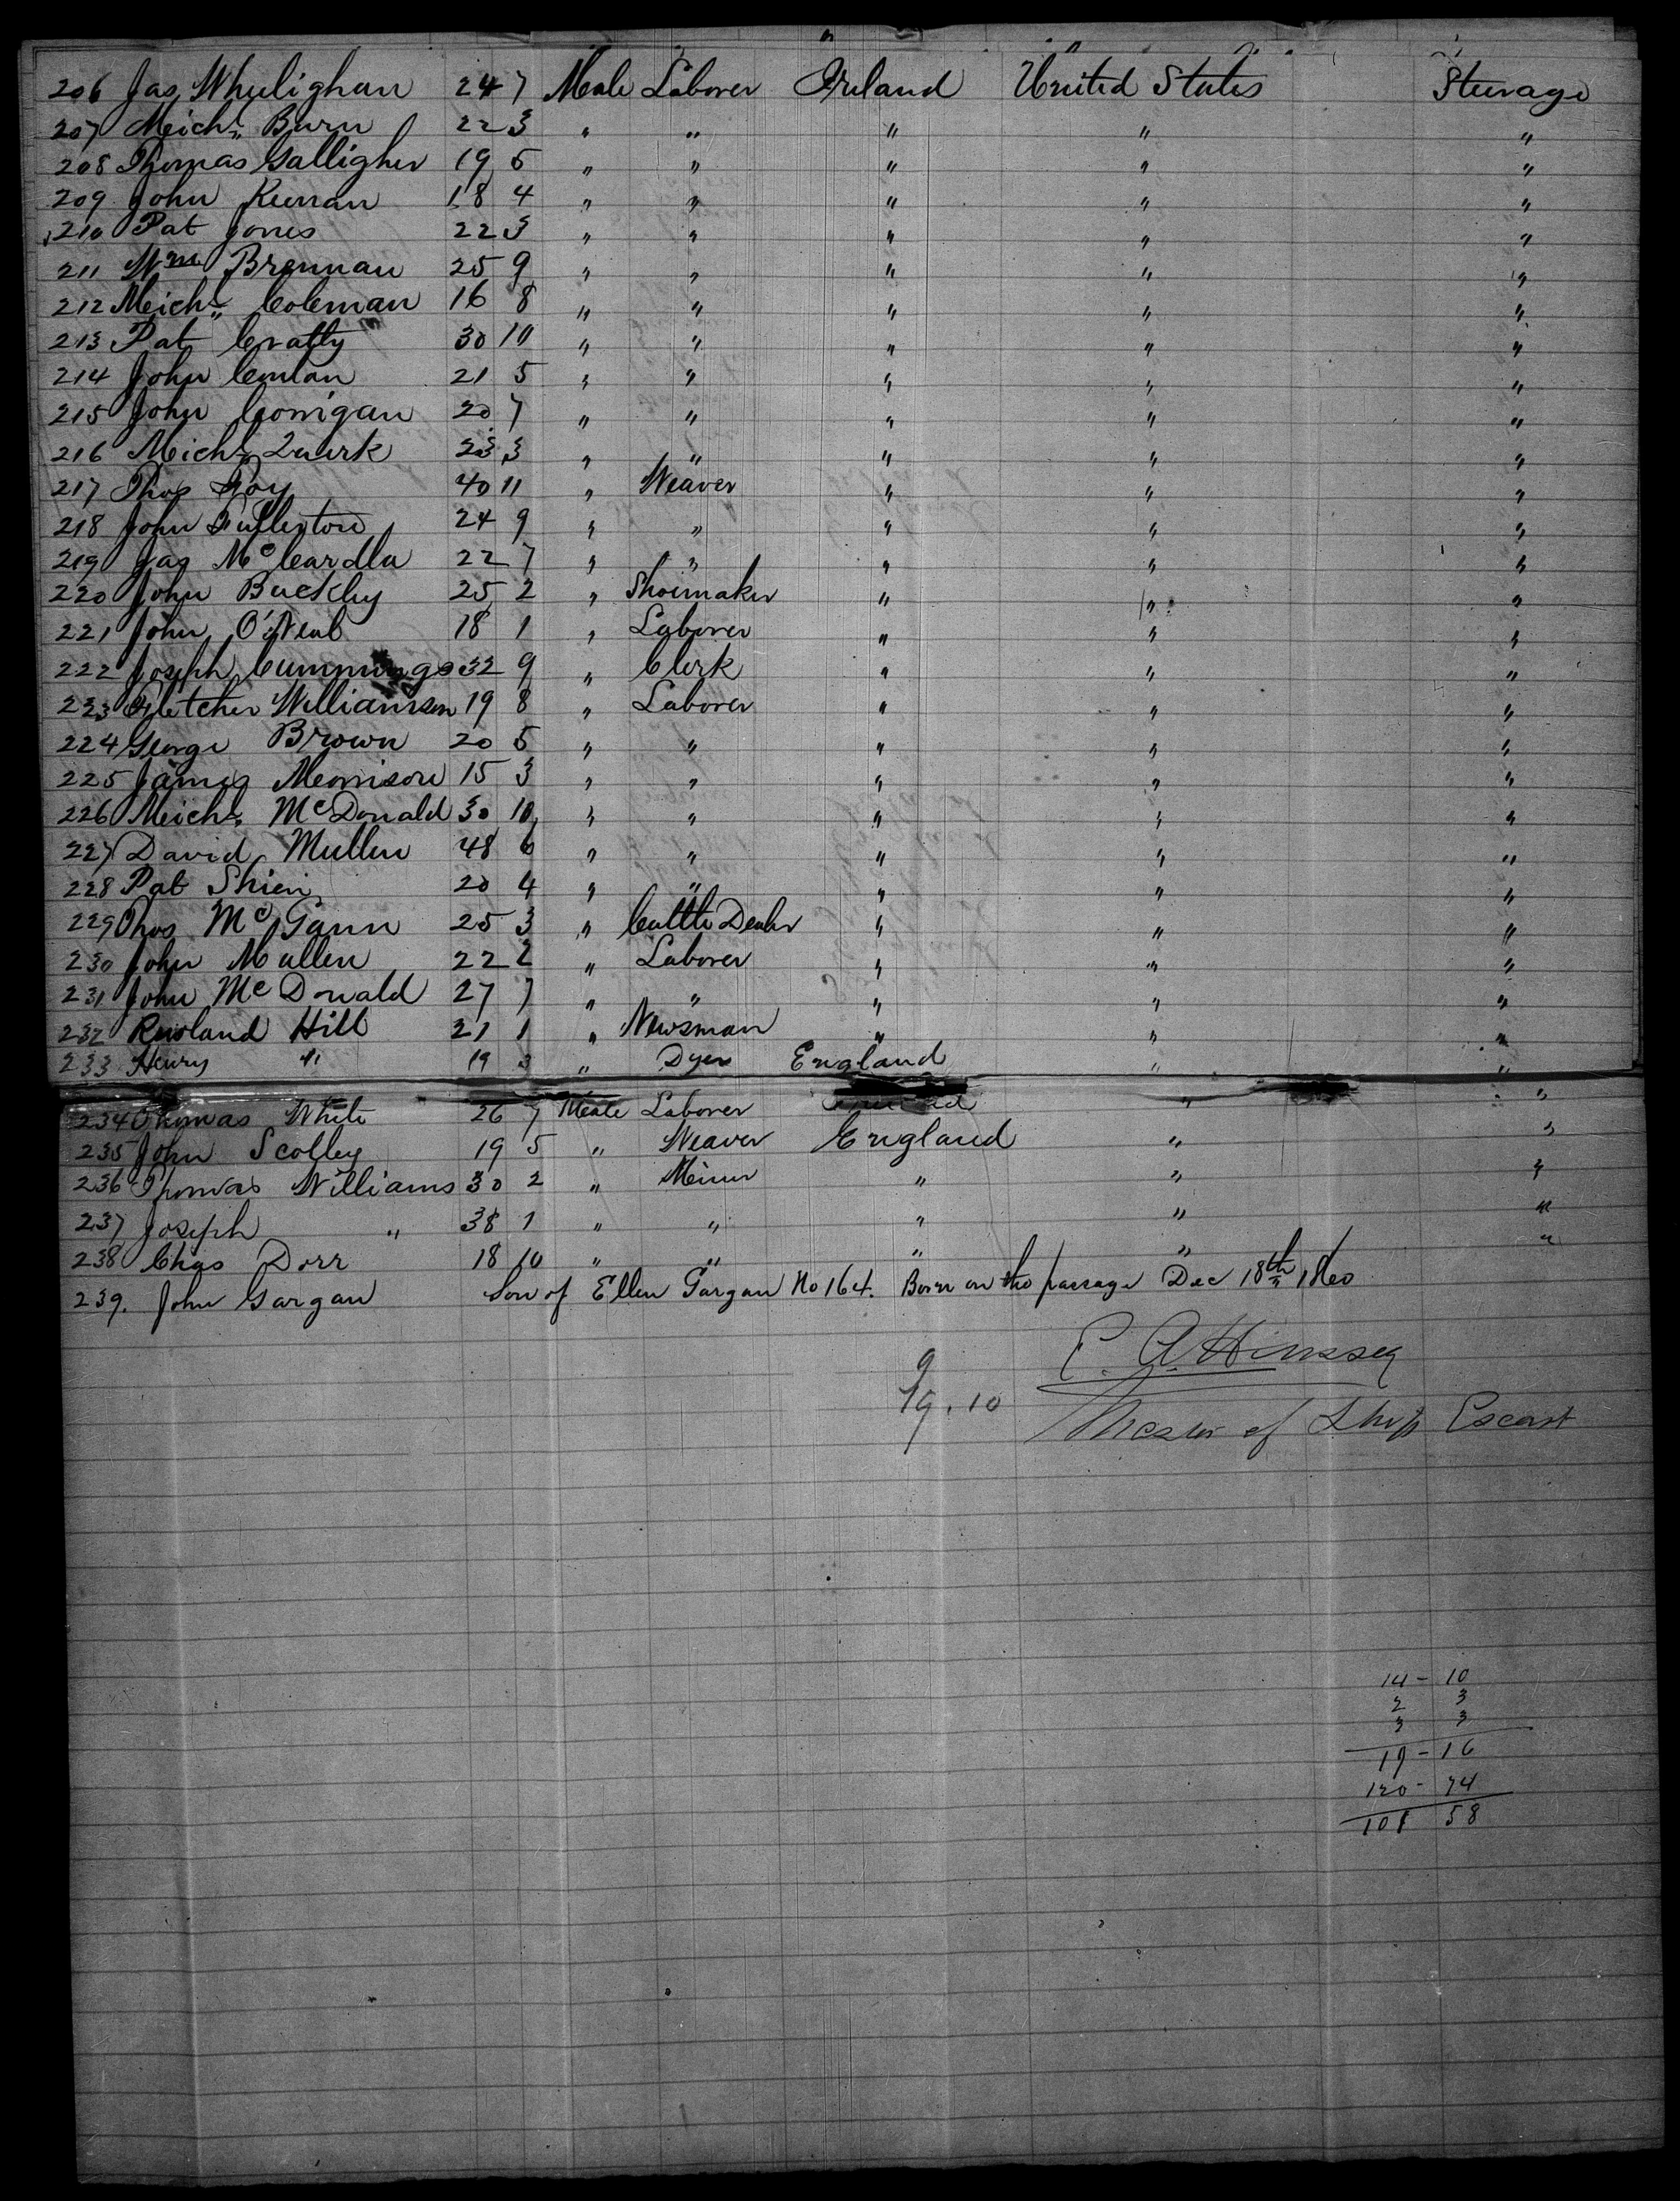 206 Jas Whulighan 24 7 Male Laborer Ireland United States Steerage
207 Meichl Burn 22 3 " " " " "
208 Thomas Galligher 19 5 " " " " "
209 John Kiernan 18 4 " " " " "
210 Pat Jones 22 3 " " " " "
211 Wm Brennan 25 9 " " " " "
212 Meichl Coleman 16 8 " " " " "
213 Pat Cratty 30 10 " " " " "
214 John Conlan 21 5 " " " " "
215 John Corrigan 20 7 " " " " "
216 Meichl Quirk 23 3 " " " " "
217 Thos Foy 40 11 " Weaver " " "
218 John Fullerton 24 9 " " " " "
219 Jas McCardle 22 7 " " " " "
220 John Buckley 25 2 " Shoemaker " " "
221 John O'Neal 18 1 " Laborer " " "
222 Joseph Cummings 32 9 " Clerk " " "
223 Fletcher Williamson 19 8 " Laborer " " "
224 George Brown 20 5 " " " " "
225 James Morrison 15 3 " " " " "
226 Meichl McDonald 30 10 " " " " "
227 David Mullen 48 6 " " " " "
228 Pat Shien 20 4 " " " " "
229 Thos McGann 25 3 " Cattle Dealer " " "
230 John Mullen 22 2 " Laborer " " "
231 John McDonald 27 7 " " " " "
232 Rowland Hill 21 1 " Newsman " " "
233 Henry " 19 3 " Dyer England " "
234 Thomas White 26 7 Male Laborer " "
235 John Scolley 19 5 " Weaver England " "
236 Thomas Williams 30 2 " Miner " " "
237 Joseph " 38 1 " " " " "
238 Chas Dorr 18 10 " " " " "
239. John Gargan Son of Ellen Gargan No 164. Born on the passage Dec 18th 1860
E. A. Hussey
9
19.10
Master of Ship Escort
14 - 10
2 3
3 3
19 - 16
120 - 74
101 58